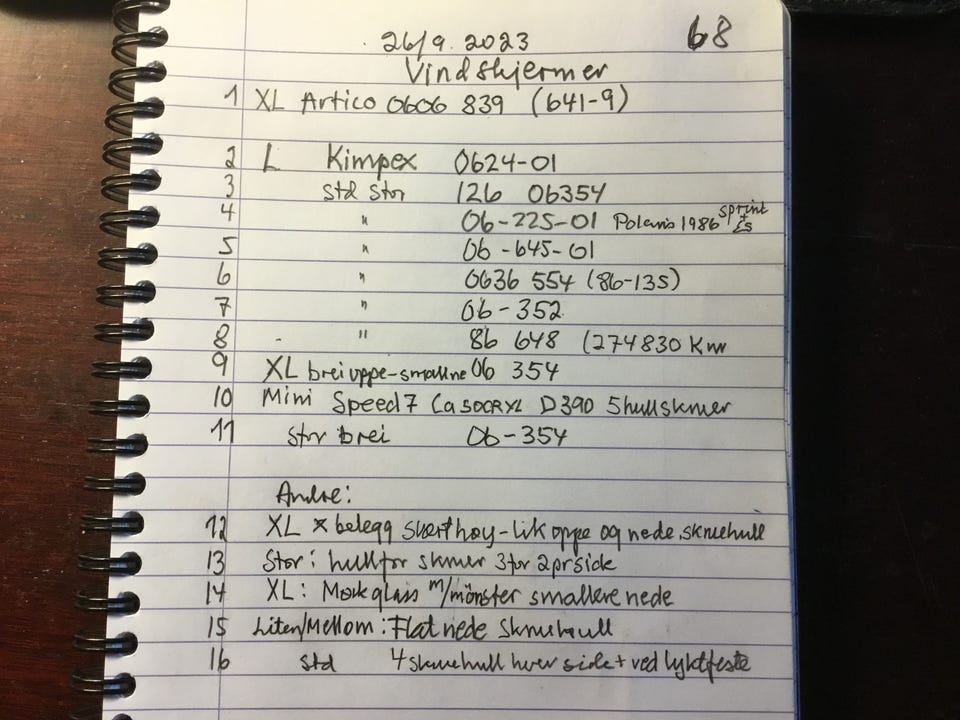 26/9. 2023 68
Vindskjermer
1 XL Artico 0606 839 (641-9)
2 L Kimpex 0624-01
3 Std Stor 126 06354
4 " 06-225-01 Polaris 1986 sprint + Es
5 " 06-645-01
6 " 0636 554 (86-135)
7 " 06-352
8 " 86 648 (274830 Km
9 XL brei oppe-smal nne 06 354
10 Mini Speed 7 Ca 500RXL D390 5hullskruer
11 Stor brei 06-354
Andre:
12 XL x belegg svært høy-lik oppe og nede, skruehull
13 Stor: hull for skruer 3 for 2 pr side
14 XL: Mørk glass m/mönster smallere nede
15 Liten/Mellom: Flat nede Skruehull
16 Std 4 skruehull hver side + ved lyktfeste